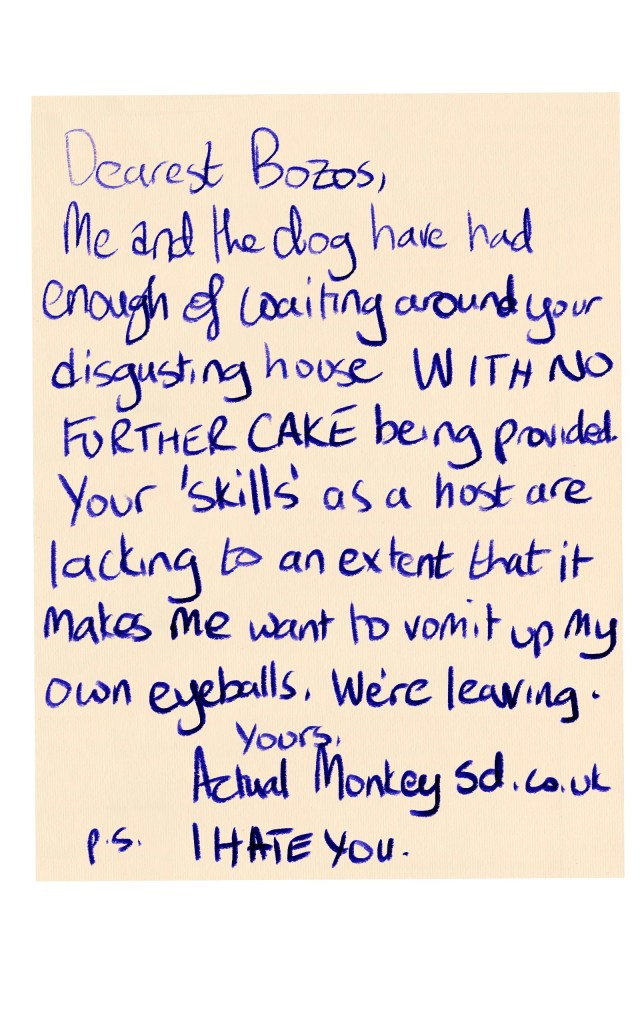 Dearest Bozos,
Me and the dog have had
enough of waiting around your
disgusting house WITH NO
FURTHER CAKE being provided.
Your 'skills' as a host are
lacking to an extent that it
makes me want to vomit up my
own eyeballs. We're leaving.
Yours,
Actual Monkey sd.co.uk
p.s. I HATE YOU.